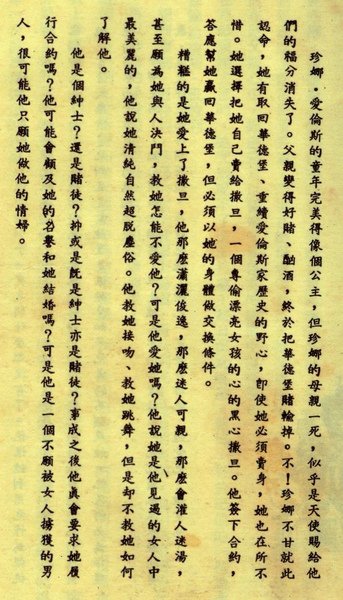 珍娜。愛倫斯的童年完美得像個公主,但珍娜的母親一死,似乎是天使賜給他
們的福分消失了。父親變得好賭、酗酒,終於把華德堡賭輸掉。不!珍娜不甘就此
認命,她有取回華德堡、重續愛倫斯家歷史的野心,即使她必須賣身,她也在所不
惜。她選擇把她自己賣給撒旦,一個專偷漂亮女孩的心的黑心撒旦。他簽下合約,
答應幫她贏回華德堡,但必須以她的身體做交換條件。
糟糕的是她愛上了撒旦,他那麽瀟灑俊逸,那麽迷人可親,那麽會灌人迷湯,
甚至願為她與人決鬥,教她怎能不愛他?可是他愛她嗎?他說她是他見過的女人中
最美麗的,他說她清純自然超脫塵俗。他教她接吻、教她跳舞,但是却不教她如何
了解他。
他是個紳士?還是賭徒?抑或是旣是紳士亦是賭徒?事成之後他眞會要求她履
行合約嗎?他可能會顧及她的名譽和她結婚嗎?可是他是一個不願被女人擄獲的男
人,很可能他只願她做他的情婦。